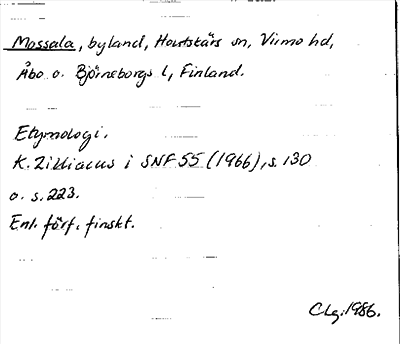 Mossala, byland, Houtskärs sn, Virmo hd,
Åbo o. Björneborgs l, Finland.
Etymologi.
K. Zilliacus i SNF 55 (1966), s. 130
o. s. 223.
Enl. förf. finskt.
CLg. 1986.